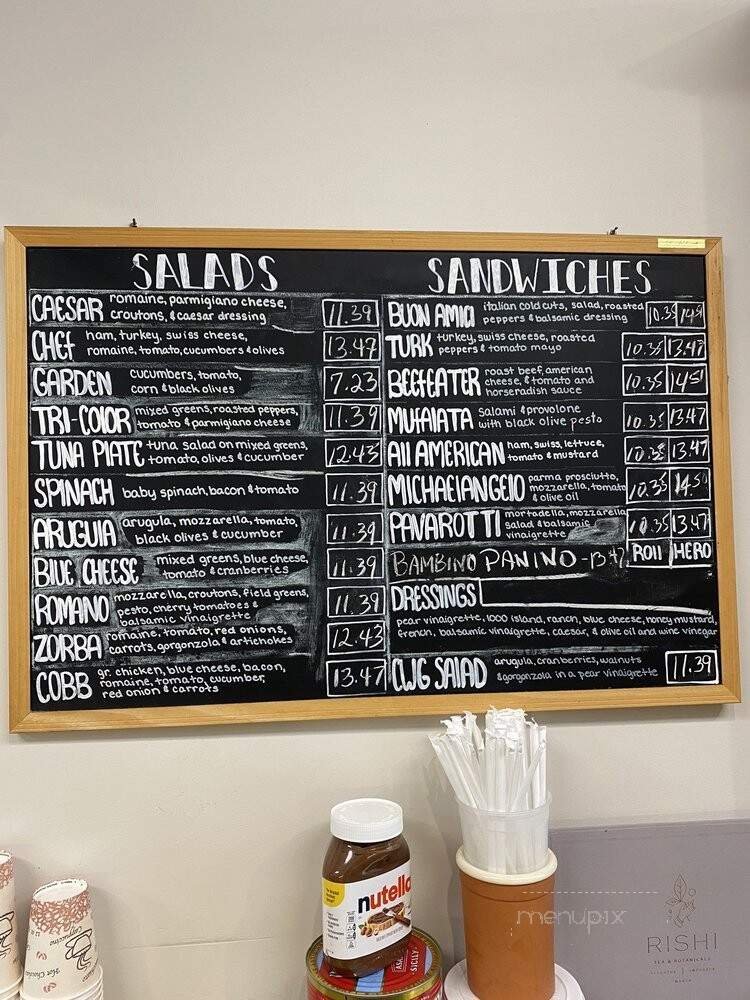 SALADS
CAESAR romaine, parmigiano cheese,
croutons, & caesar dressing 11.39
CHEF ham, turkey, swiss cheese,
romaine, tomato, cucumbers & olives 13.47
GARDEN cucumbers, tomato,
corn & black olives 7.23
TRI-COLOR mixed greens, roasted peppers,
tomato & parmigiano cheese 11.39
TUNA PLATE tuna salad on mixed greens,
tomato, olives & cucumber 12.43
SPINACH baby spinach, bacon & tomato 11.39
ARUGULA arugula, mozzarella, tomato,
black olives & cucumber 11.39
BLUE CHEESE mixed greens, blue cheese,
tomato & cranberries 11.39
ROMANO mozzarella, croutons, field greens,
pesto, cherry tomatoes &
balsamic vinaigrette 11.39
ZORBA romaine, tomato, red onions,
carrots, gorgonzola & artichokes 12.43
COBB gr. chicken, blue cheese, bacon,
romaine, tomato, cucumber,
red onion & carrots 13.47
SANDWICHES
BUON AMICI italian cold cuts, salad, roasted
peppers & balsamic dressing 10.35
TURK turkey, swiss cheese, roasted
peppers & tomato mayo 10.35 13.47
BEEFEATER roast beef, american
cheese, & tomato and
horseradish sauce 10.35 14.51
MUFALATA salami & provolone
with black olive pesto 10.35 13.47
All AMERICAN ham, swiss, lettuce,
tomato & mustard 10.35 13.47
MICHAELANGELO parma prosciutto,
mozzarella, tomato
& olive oil 10.35
PAVAROTTI mortadella, mozzarella
salad & balsamic
vinaigrette 10.35 13.47
BAMBINO PANINO - 13.47 ROLL HERO
DRESSINGS
pear vinaigrette, 1000 island, ranch, blue cheese, honey mustard,
french, balsamic vinaigrette, caesar, & olive oil and wine vinegar
CWG SALAD arugula, cranberries, walnuts
& gorgonzola in a pear vinaigrette 11.39
nutella
SICILY
Hot Chocolate
Cappuccino
menupix
RISHI
TEA & BOTANICALS